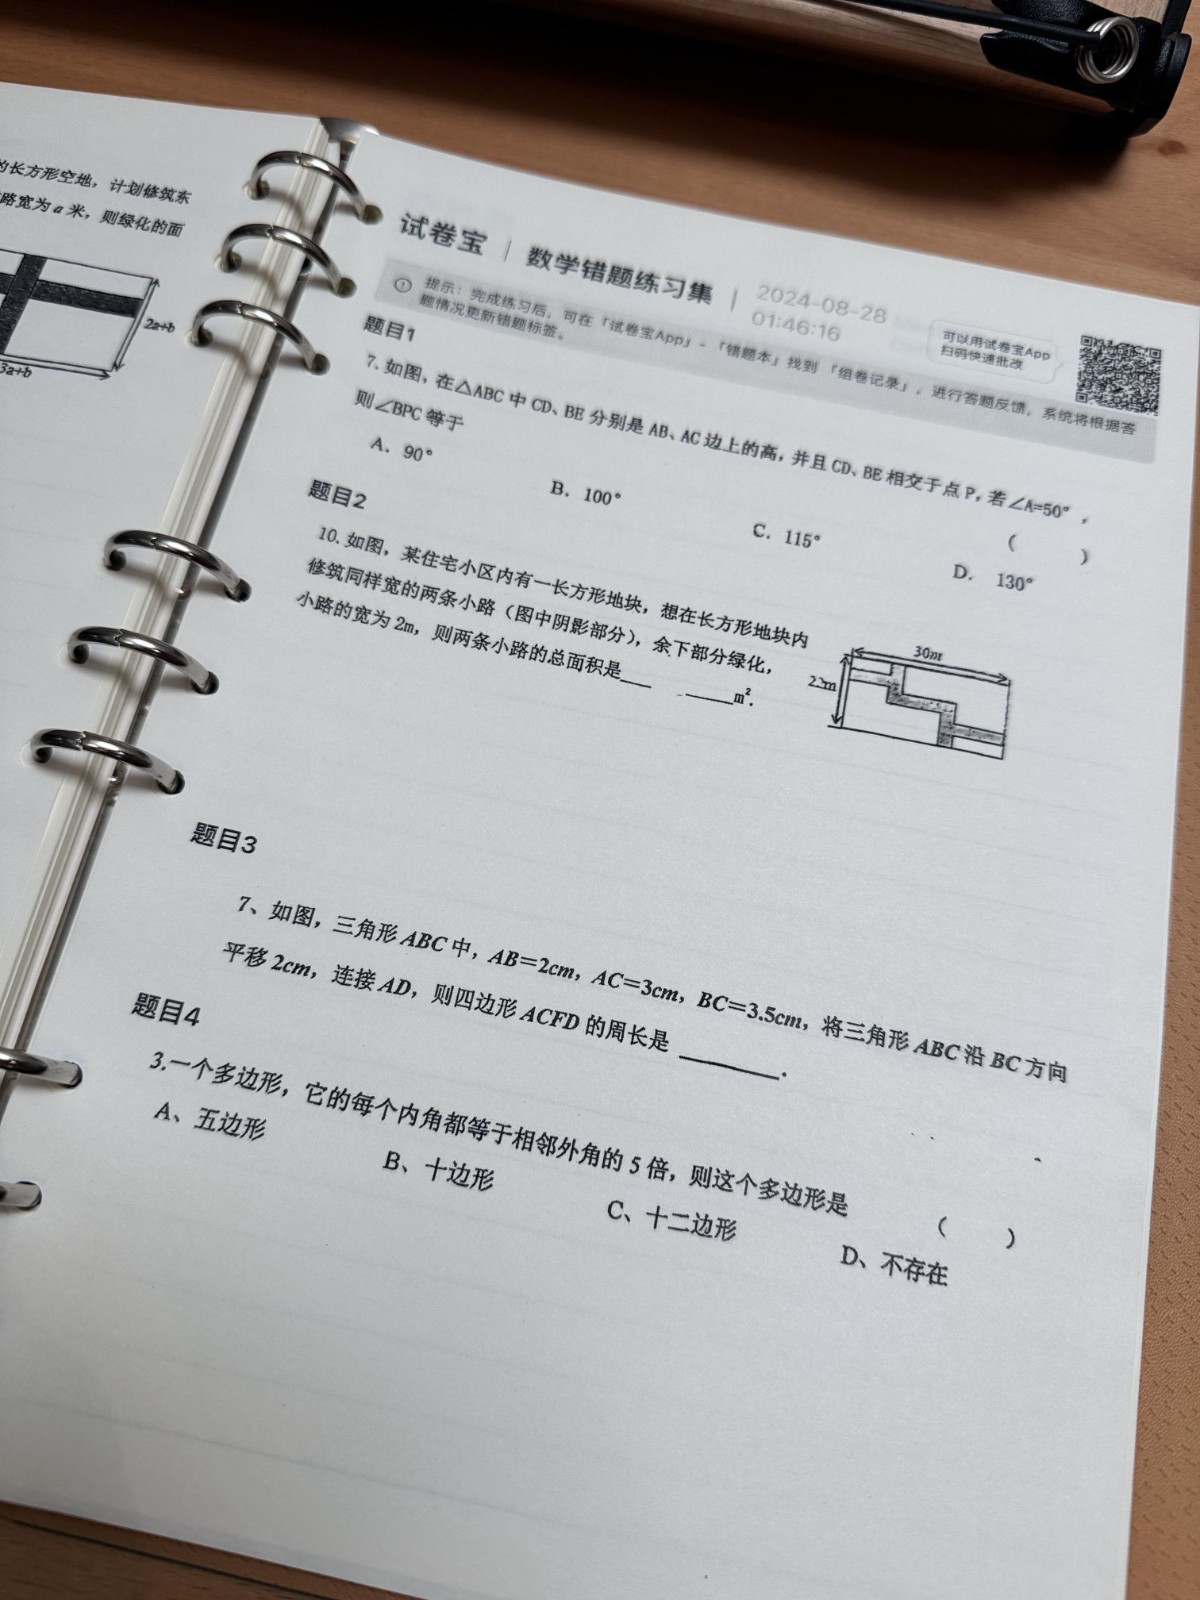 的长方形空地，计划修筑东
路宽为 a 米，则绿化的面
2a+b
3a+b
试卷宝 | 数学错题练习集 | 2024-08-28
01:46:16
提示：完成练习后，可在「试卷宝App」-「错题本」找到「组卷记录」，进行答题反馈，系统将根据答
题情况更新错题标签。
可以用试卷宝App
扫码快速批改
题目1
7. 如图，在△ABC 中 CD、BE 分别是 AB、AC 边上的高，并且 CD、BE 相交于点 P，若∠A=50°，
则∠BPC 等于 ( )
A. 90° B. 100° C. 115° D. 130°
题目2
10. 如图，某住宅小区内有一长方形地块，想在长方形地块内
修筑同样宽的两条小路（图中阴影部分），余下部分绿化，
小路的宽为 2m，则两条小路的总面积是___ ____m².
30m
22m
题目3
7、如图，三角形 ABC 中，AB=2cm，AC=3cm，BC=3.5cm，将三角形 ABC 沿 BC 方向
平移 2cm，连接 AD，则四边形 ACFD 的周长是 ________.
题目4
3.一个多边形，它的每个内角都等于相邻外角的 5 倍，则这个多边形是 ( )
A、五边形 B、十边形 C、十二边形 D、不存在